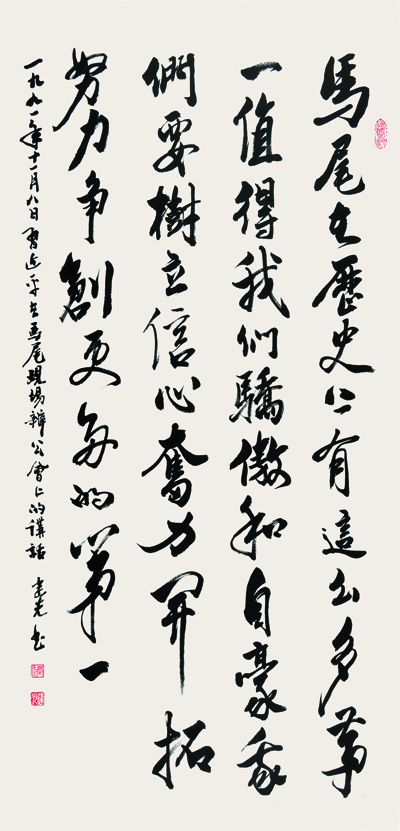 馬尾在歷史上有這么多第
一值得我们驕傲和自豪我
們要樹立信心奮力开拓
努力争創更多的第一
一九九一年十一月八日習近平在馬尾現場辦公會上的講話 書